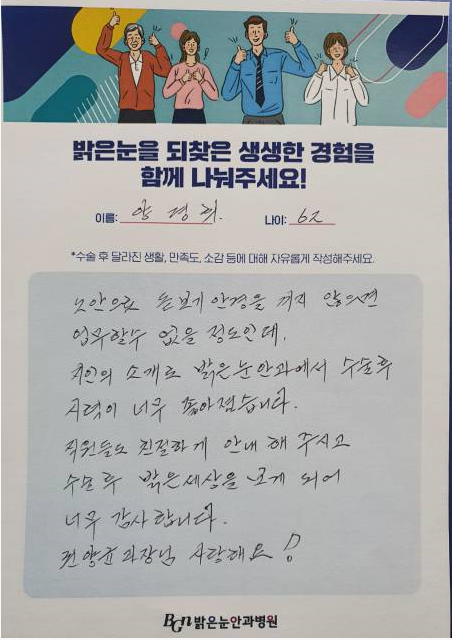 밝은눈을 되찾은 생생한 경험을
함께 나눠주세요!
이름: 양 경 휘. 나이: 62
*수술 후 달라진 생활, 만족도, 소감 등에 대해 자유롭게 작성해주세요.
노안으로 돋보기 안경을 끼지 않으면
업무할수 없을 정도인데.
지인의 소개로 밝은눈안과에서 수술후
시력이 너무 좋아졌습니다.
직원들도 친절하게 안내 해 주시고
수술 후 밝은세상을 보게 되어
너무 감사합니다.
과장님 사랑해요!
BGN 밝은눈안과병원